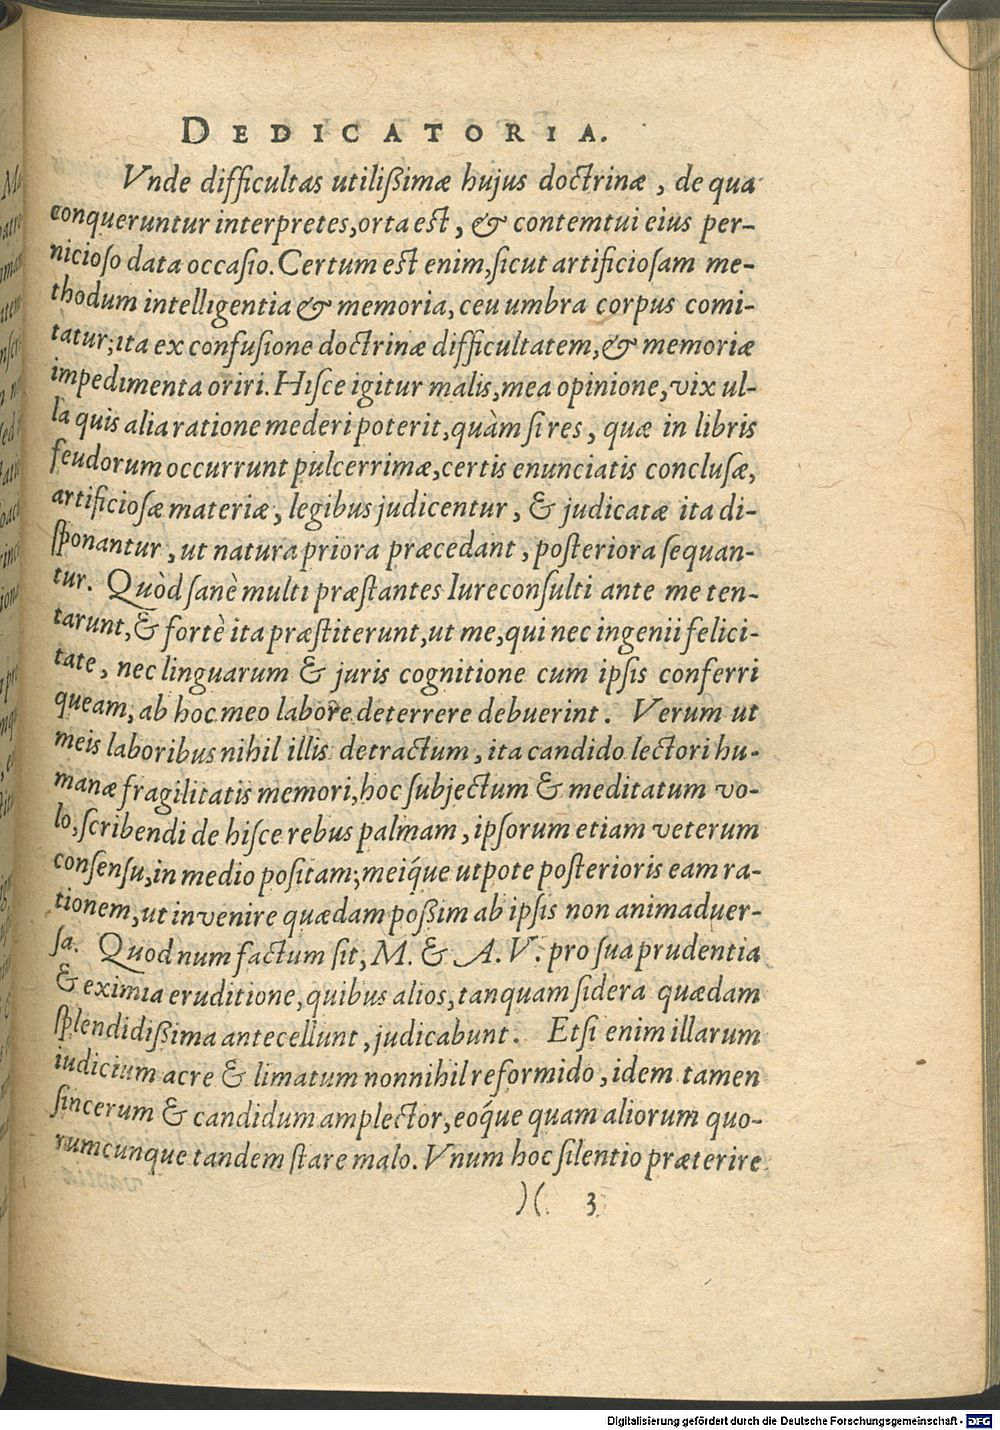 DEDICATORIA.
Vnde difficultas utilißimæ hujus doctrinæ, de qua
conqueruntur interpretes, orta est, & contemtui eius per-
nicioso data occasio. Certum est enim, sicut artificiosam me-
thodum intelligentia & memoria, ceu umbra corpus comi-
tatur; ita ex confusione doctrinæ difficultatem, & memoriæ
impedimenta oriri. Hisce igitur malis, mea opinione, vix ul-
la quis alia ratione mederi poterit, quàm si res, quæ in libris
feudorum occurrunt pulcerrimæ, certis enunciatis conclusæ,
artificiosæ materiæ, legibus judicentur, & judicatæ ita di-
sponantur, ut natura priora præcedant, posteriora sequan-
tur. Quòd sanè multi præstantes Iureconsulti ante me ten-
tarunt, & fortè ita præstiterunt, ut me, qui nec ingenii felici-
tate, nec linguarum & juris cognitione cum ipsis conferri
queam, ab hoc meo labore deterrere debuerint. Verum ut
meis laboribus nihil illis detractum, ita candido lectori hu-
manæ fragilitatis memori, hoc subjectum & meditatum vo-
lo, scribendi de hisce rebus palmam, ipsorum etiam veterum
consensu, in medio positam; meiq́ue utpote posterioris eam ra-
tionem, ut invenire quædam poßim ab ipsis non animaduer-
sa. Quod num factum sit, M. & A. V. pro sua prudentia
& eximia eruditione, quibus alios, tanquam sidera quædam
splendidißima antecellunt, judicabunt. Etsi enim illarum
iudicium acre & limatum nonnihil reformido, idem tamen
sincerum & candidum amplector, eoq́ue quam aliorum quo-
rumcunque tandem stare malo. Vnum hoc silentio præterire
)( 3
Digitalisierung gefördert durch die Deutsche Forschungsgemeinschaft - DFG